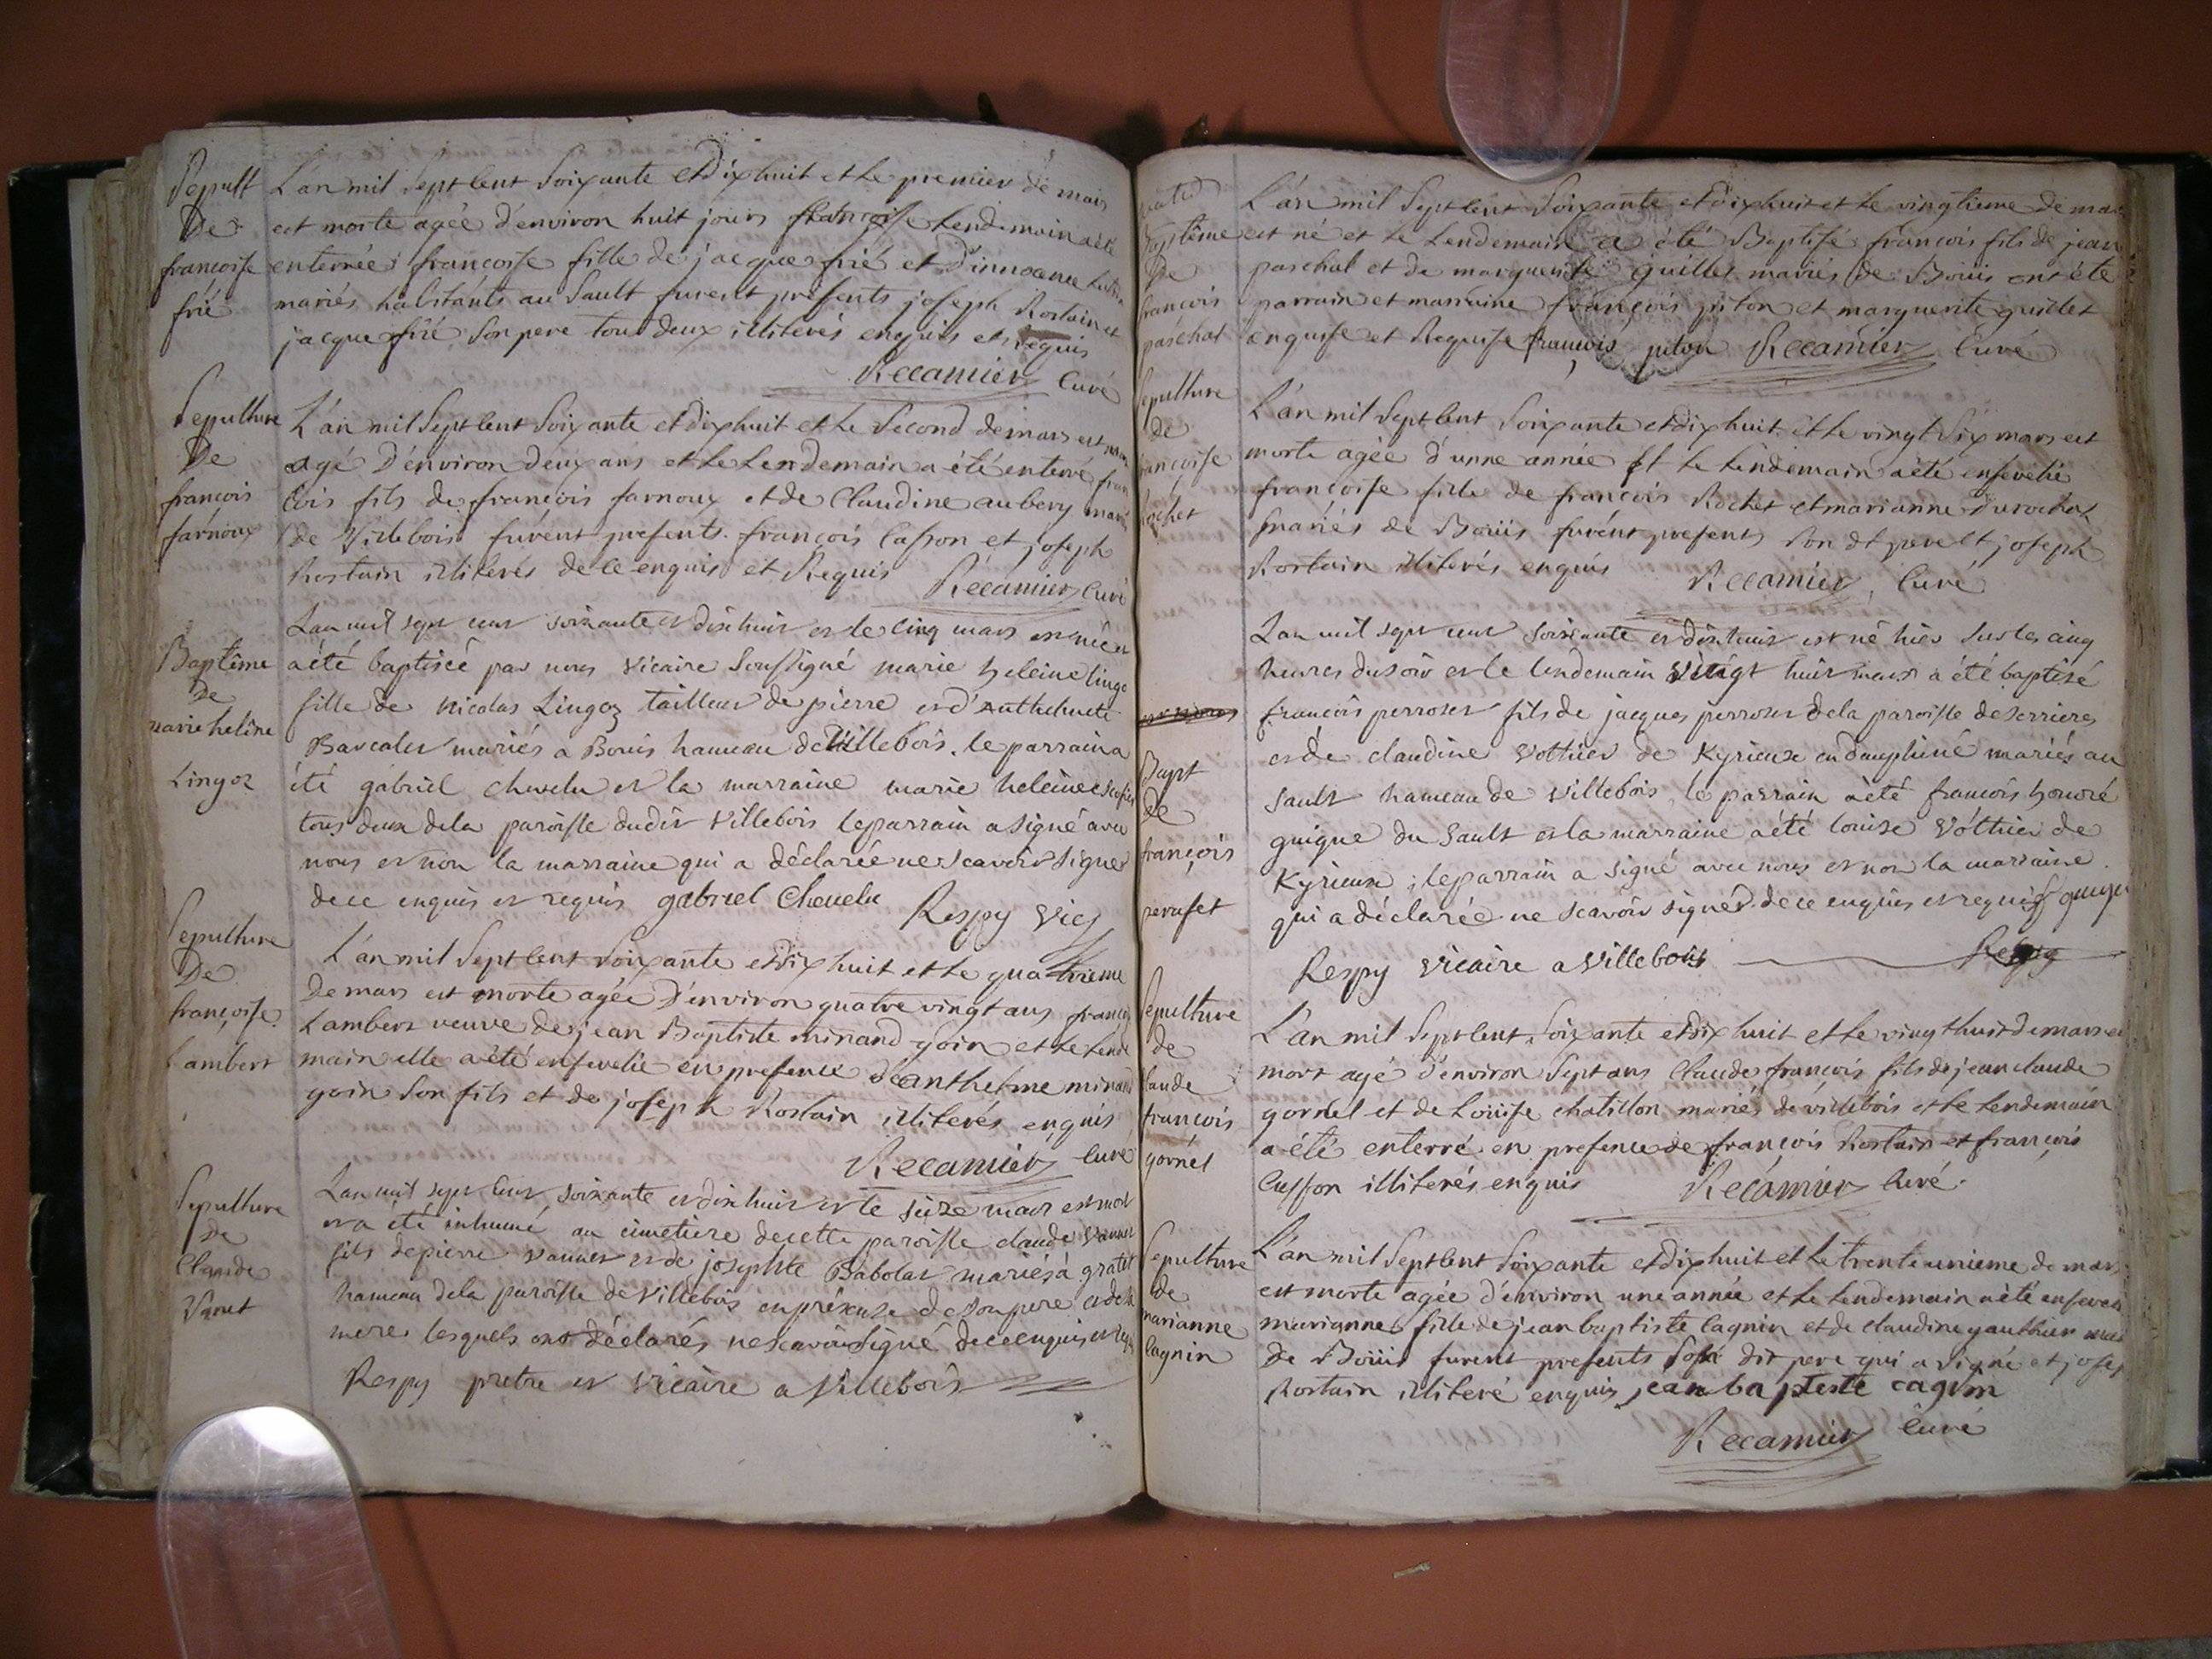 Sepult
De
francoise
frié
L'an mil Sept Cent Soixante et Dixhuit et le premier de mars
est morte agée d'environ huit jours et le Lendemain a été
enterrée francoise fille de jacque frié et D'innocence
mariés habitants au Sault furent présents joseph Rostain et
jacque frié Son pere tous deux illiterés enquis et requis
Recamier Curé
Sepulture
De
francois
farnoux
L'an mil Sept Cent Soixante et dixhuit et le Second de mars est mort
agé D'environ deux ans et le Lendemain a été enterré fran
cois fils de francois farnoux et de Claudine aubery mariés
de Villebois furent presents francois Casson et joseph
Rostain illiterés de ce enquis et Requis Récamier Curé
Baptême
de
marie heline
Lingoz
Lan mil sept cent soixante et dix huit et le cinq mars est née et
a été baptisée par nous vicaire Soussigné marie heleine lingo
fille de nicolas Lingoz tailleur de pierre et d'Anthelmete
Bavcales mariés a Bouis hameau de Villebois. le parrain a
été gabriel chevelu et la marraine marie heleine
tous deux de la paroisse dudit Villebois le parrain a signé avec
nous et non la marraine qui a déclarée ne scavoir signer
de ce enquis et requis gabriel Chevelu Respy vic
Sepulture
De
françoise
Lambert
L'an mil Sept Cent Soixante et Dix huit et le quatrieme
De mars est morte agée D'environ quatre vingt ans françoise
Lambert veuve de jean Baptiste minand goin et le Lende
main elle a été ensevelie en presence de anthelme minand
goin Son fils et de joseph Rostain illiterés enquis
Recamier Curé
Sepulture
De
Claude
Vanet
Lan mil sept cent soixante et dix huit et le seize mars est mort
et a été inhumé au cimetiere de cette paroisse claude vannet
fils de pierre vannet et de josephte Babolat mariés à gratet
hameau de la paroisse de villebois en présense de son pere et de sa
mere lesquels ont déclarés ne scavoir signé de ce enquis et requis
Respy pretre et vicaire a villebois
Baptême
De
francois
paschal
L'an mil Sept Cent Soixante et dixhuit et le vingtieme de mars
est né et le Lendemain a été Baptisé francois fils de jean
paschal et de marguerite guillet mariés de Boüis ont été
parrain et marraine françois piton et marguerite guillet
enquise et Requise francois piton Recamier Curé
Sepulture
de
françoise
rochet
L'an mil Sept Cent Soixante et dix huit et le vingt Six mars est
morte agée d'unne année et le Lendemain a été ensevelie
françoise fille de francois Rochet et marianne Durochat
mariés de Boüis furent presents Son dt pere et joseph
Rostain illiterés enquis Recamier Curé
Bapt
de
françois
peruset
Lan mil sept cent soixante et dixhuit est né hier sur les cinq
heures du soir et le lendemain vingt huit mars a été baptisé
francois perroset fils de jacques perroset de la paroisse de serrieres
et de claudine vothier de Kyrieux en dauphiné mariés au
sault hameau de villebois, le parrain a été francois honoré
guigue du Sault et la marraine a été louise vothier de
Kyrieux, le parrain a signé avec nous et non la marraine
qui a déclarée ne scavoir signer de ce enquis et requis guigue
Respy vicaire a villebois Respy
Sepulture
de
Claude
francois
gornél
L'an mil Sept Cent Soixante et dix huit et le vingt huit de mars est
mort agé d'environ Sept ans Claude françois fils de jean claude
gornel et de Loüise chatillon mariés de villebois et le Lendemain
a été enterré en presence de françois Rostain et françois
Casson illiterés enquis Récamier Curé.
Sepulture
de
marianne
Cagnin
L'an mil Sept Cent Soixante et dix huit et le trente unieme de mars
est morte agée d'environ une année et le Lendemain a été ensevelie
marianne fille de jean baptiste Cagnin et de claudine gauthier mariés
De Boüis furent presents Son dit pere qui a signé et joseph
Rostain illiteré enquis jean baptiste cagnin
Recamier Curé